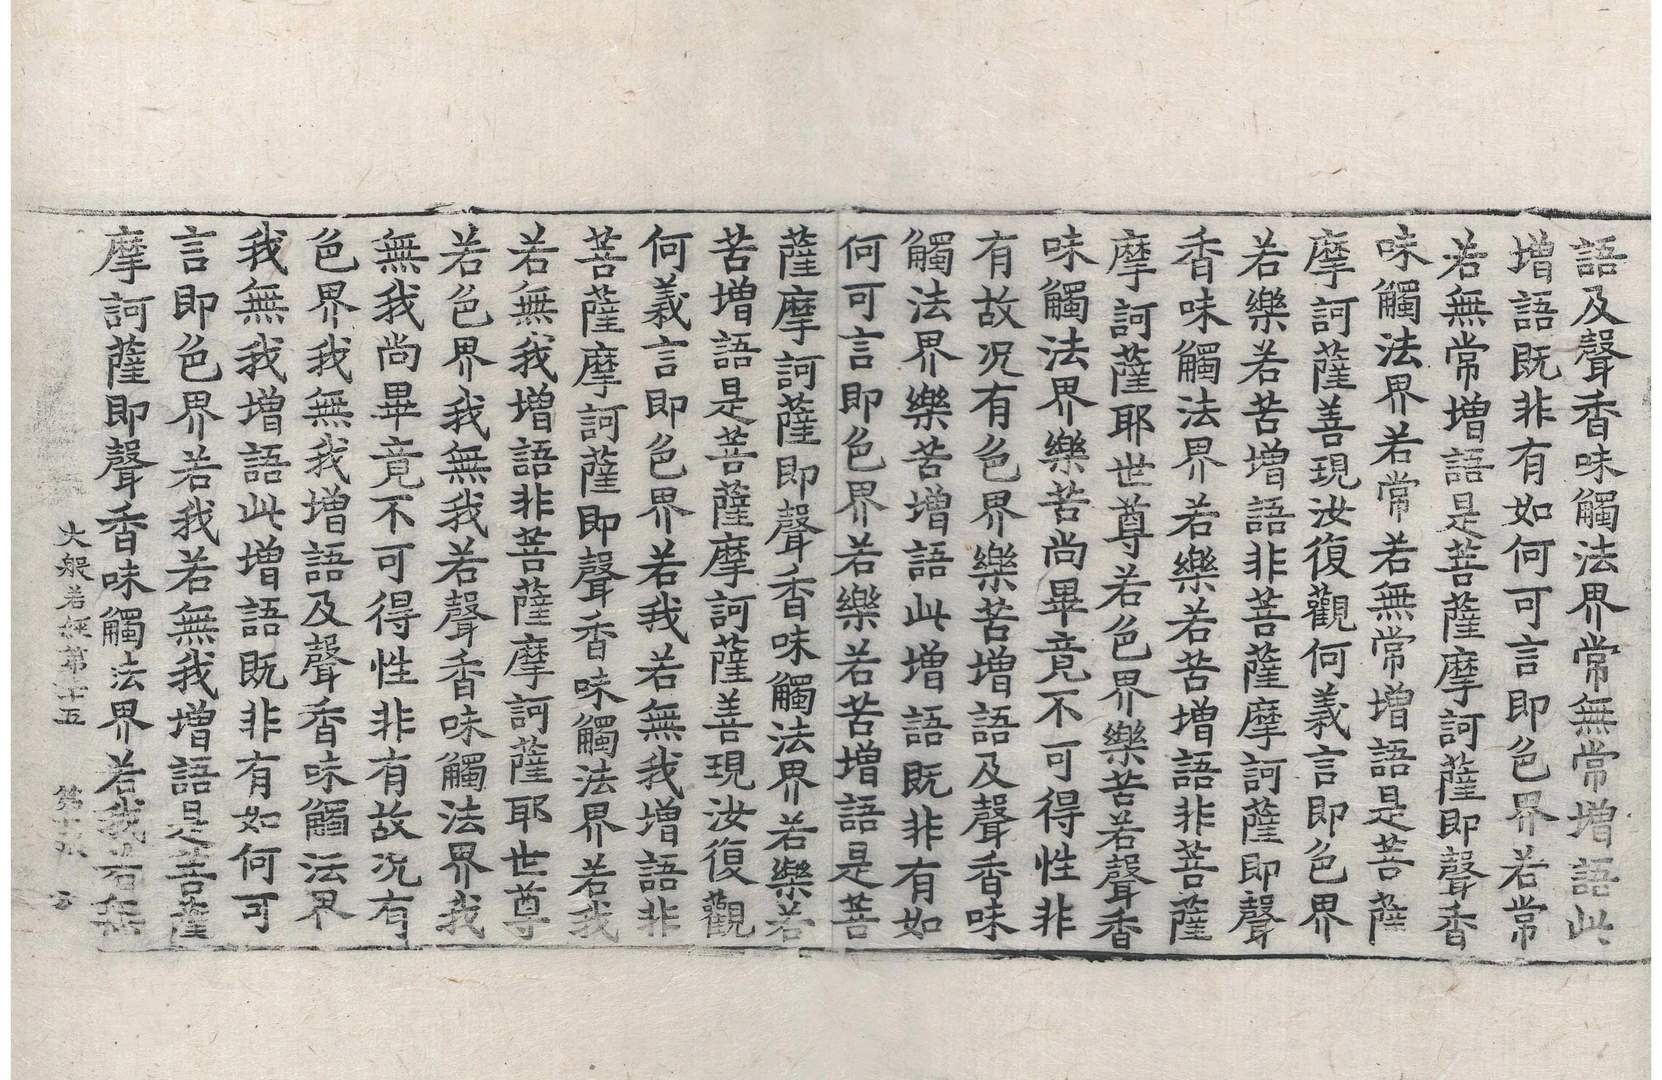 語及聲香味觸法界常無常增語此
增語既非有如何可言即色界若常
若無常增語是菩薩摩訶薩即聲香
味觸法界若常若無常增語是菩薩
摩訶薩善現汝復觀何義言即色界
若樂若苦增語非菩薩摩訶薩即聲
香味觸法界若樂若苦增語非菩薩
摩訶薩耶世尊若色界樂苦若聲香
味觸法界樂苦尚畢竟不可得性非
有故况有色界樂苦增語及聲香味
觸法界樂苦增語此增語既非有如
何可言即色界若樂若苦增語是菩
薩摩訶薩即聲香味觸法界若樂若
苦增語是菩薩摩訶薩善現汝復觀
何義言即色界若我若無我增語非
菩薩摩訶薩即聲香味觸法界若我
若無我增語非菩薩摩訶薩耶世尊
若色界我無我若聲香味觸法界我
無我尚畢竟不可得性非有故况有
色界我無我增語及聲香味觸法界
我無我增語此增語既非有如何可
言即色界若我若無我增語是菩薩
摩訶薩即聲香味觸法界若我若無
大般若經第十五 第十張